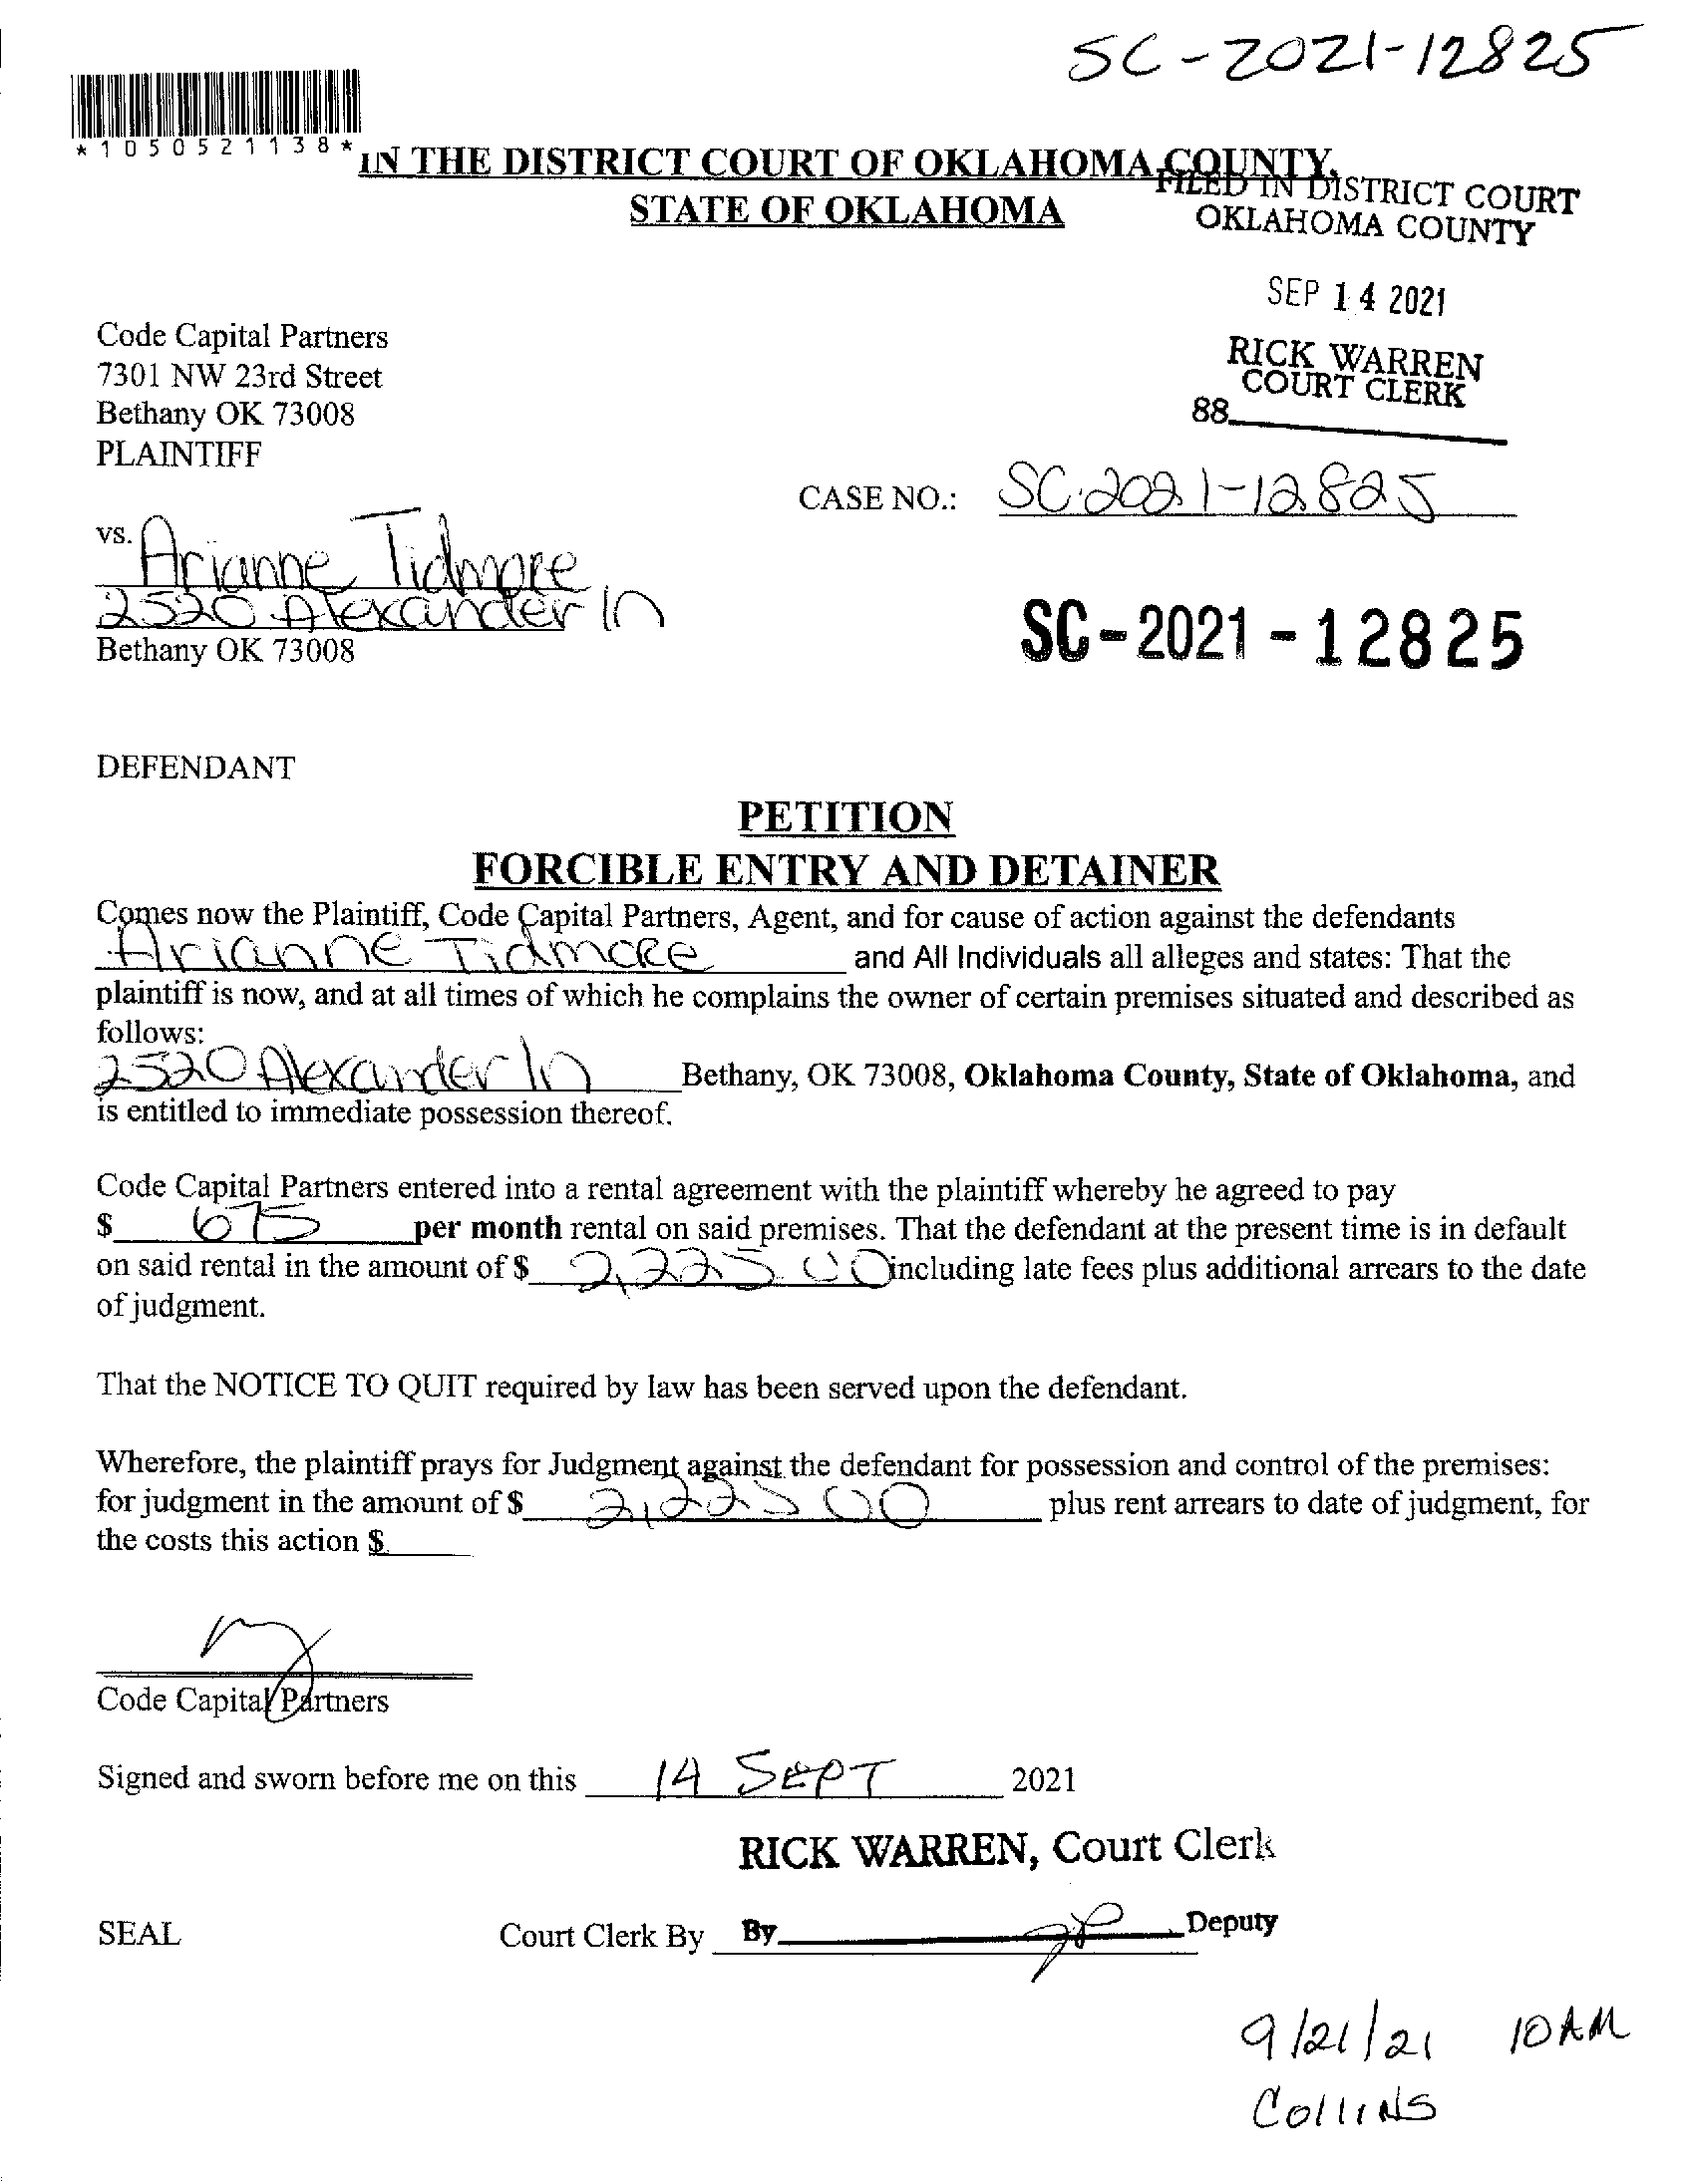 SC-2021-12825
*1050521138*
IN THE DISTRICT COURT OF OKLAHOMA COUNTY,
STATE OF OKLAHOMA
FILED IN DISTRICT COURT
OKLAHOMA COUNTY
SEP 14 2021
RICK WARREN
COURT CLERK
88
Code Capital Partners
7301 NW 23rd Street
Bethany OK 73008
PLAINTIFF
CASE NO.: SC-2021-12825
vs. Arianne Tidmore
2520 Alexander ln
Bethany OK 73008
SC-2021-12825
DEFENDANT
PETITION
FORCIBLE ENTRY AND DETAINER
Comes now the Plaintiff, Code Capital Partners, Agent, and for cause of action against the defendants
Arianne Tidmore and All Individuals all alleges and states: That the
plaintiff is now, and at all times of which he complains the owner of certain premises situated and described as
follows:
2520 Alexander ln Bethany, OK 73008, Oklahoma County, State of Oklahoma, and
is entitled to immediate possession thereof.
Code Capital Partners entered into a rental agreement with the plaintiff whereby he agreed to pay
$ 675 per month rental on said premises. That the defendant at the present time is in default
on said rental in the amount of $ 2,225 00 including late fees plus additional arrears to the date
of judgment.
That the NOTICE TO QUIT required by law has been served upon the defendant.
Wherefore, the plaintiff prays for Judgment against the defendant for possession and control of the premises:
for judgment in the amount of $ 2,225 00 plus rent arrears to date of judgment, for
the costs this action $
Code Capital Partners
Signed and sworn before me on this 14 SEPT 2021
RICK WARREN, Court Clerk
SEAL Court Clerk By By Deputy
9/21/21 10AM
Collins